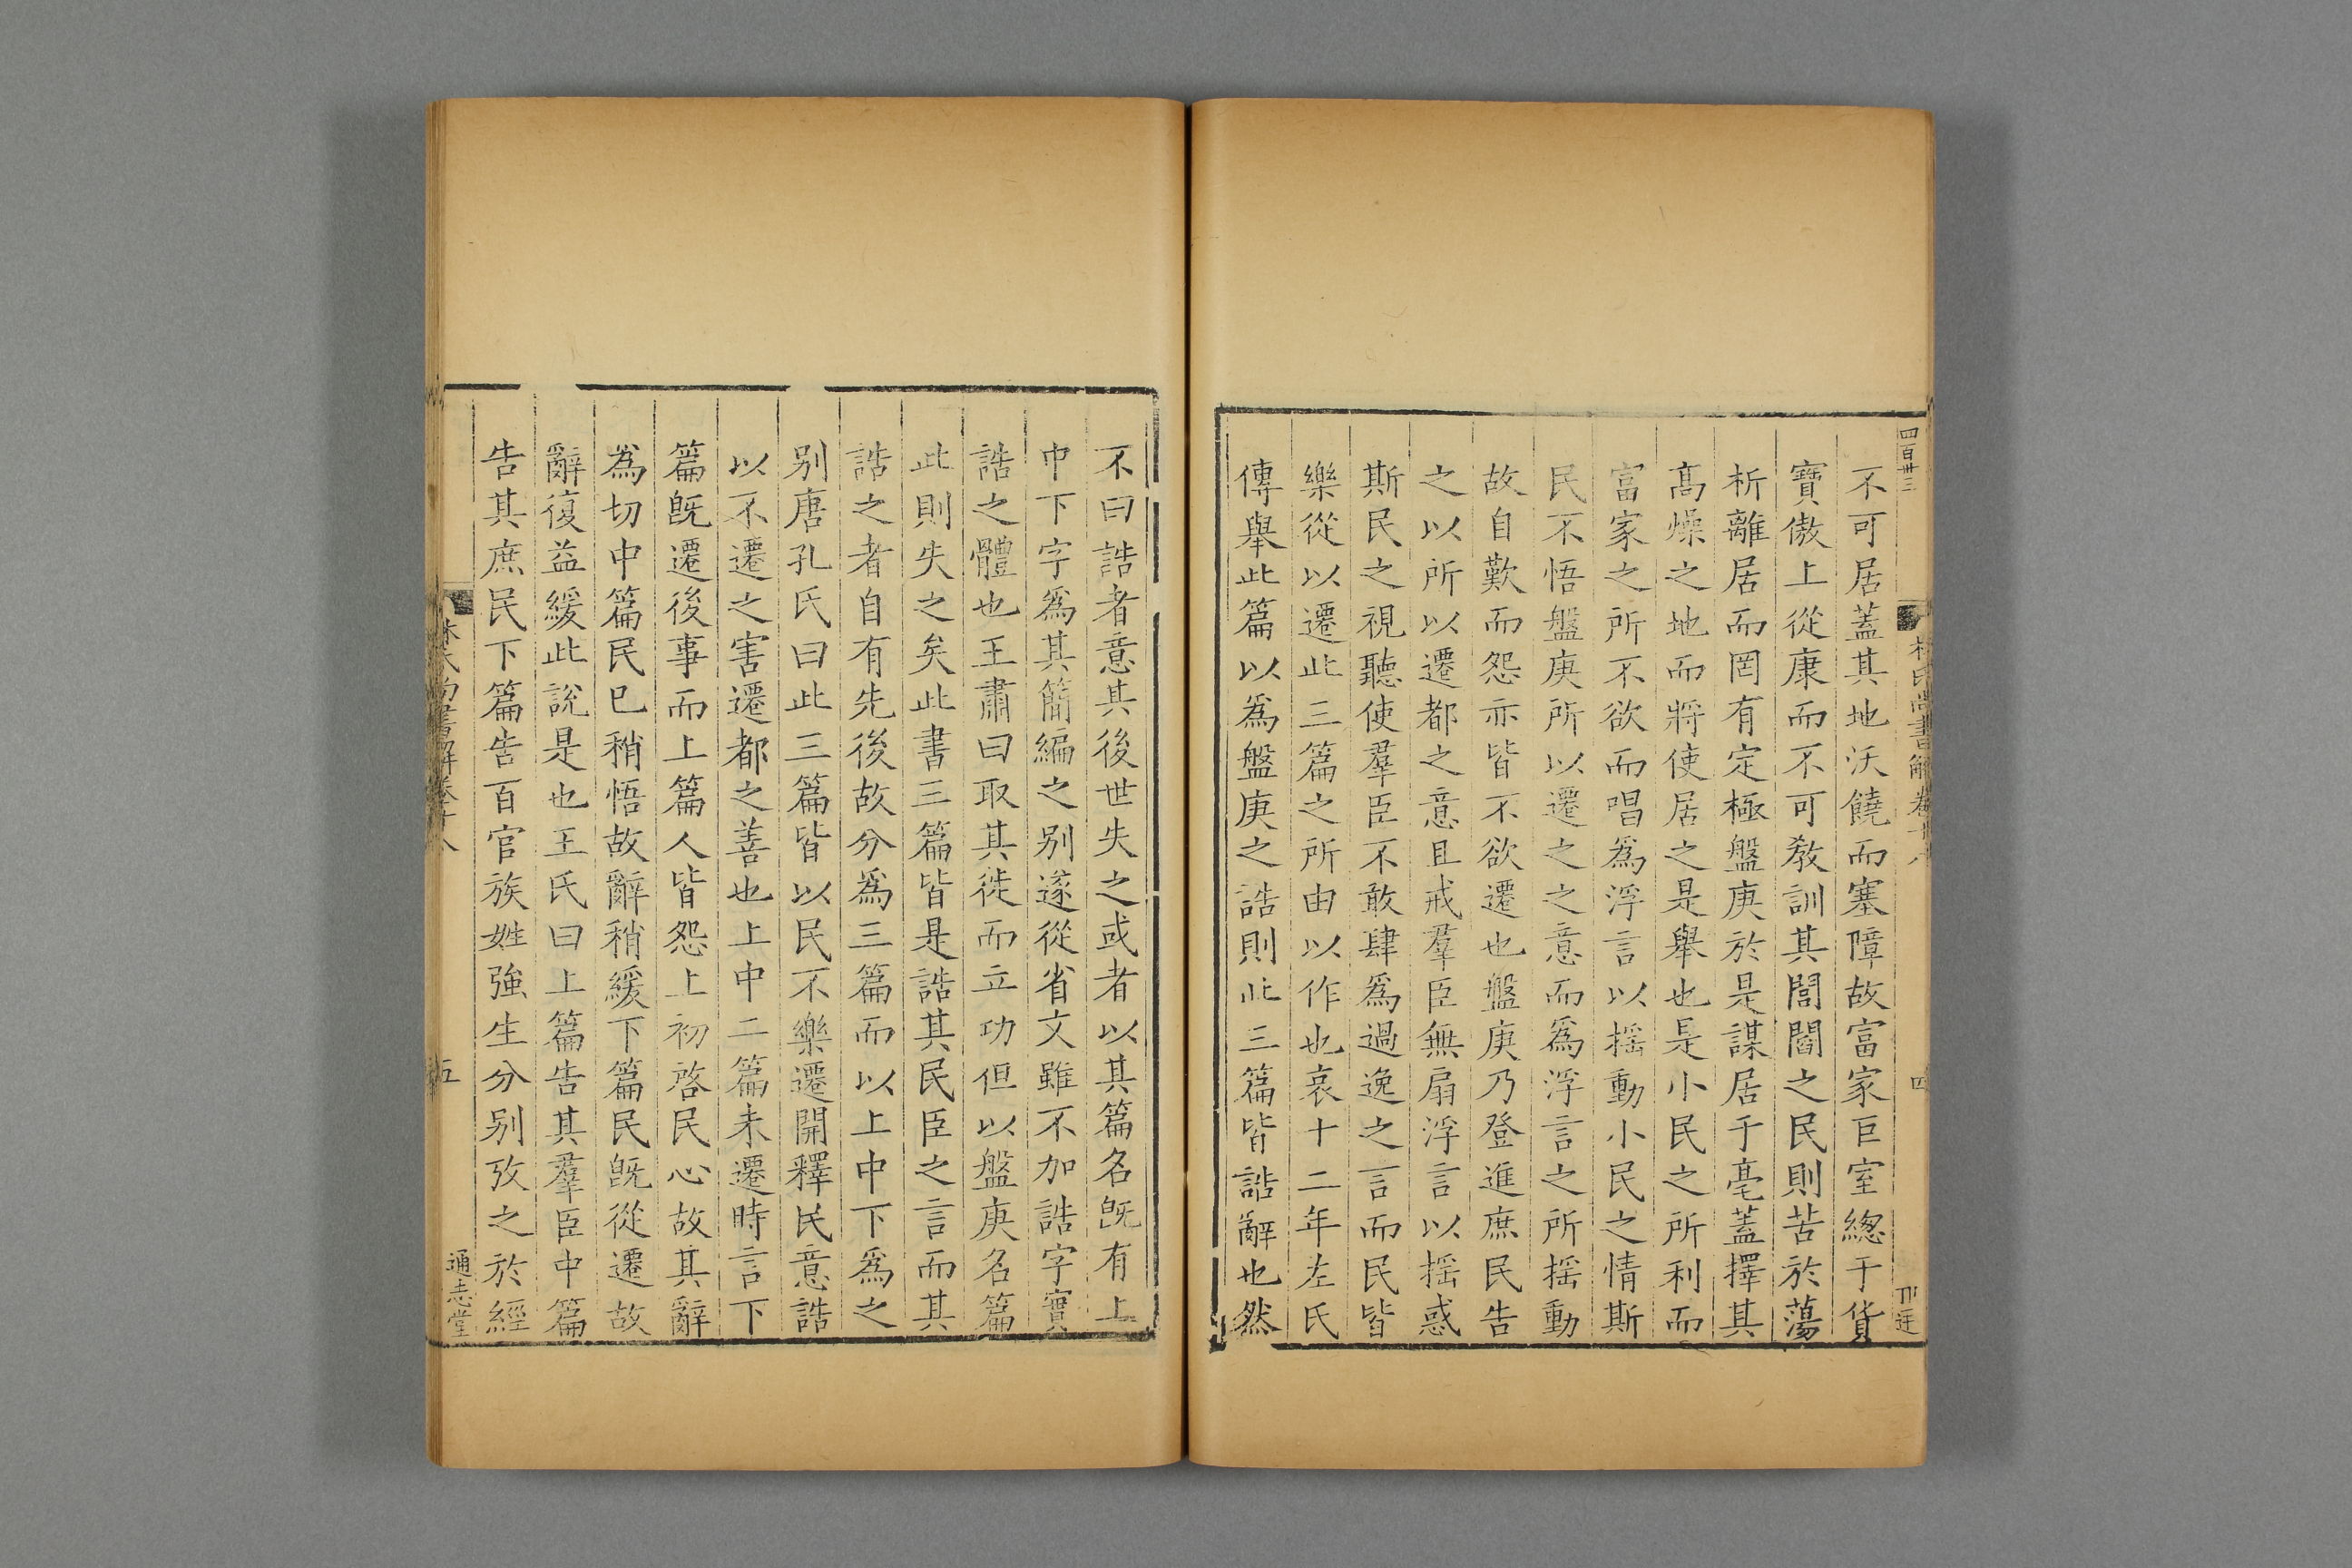 四百卌三
不可居蓋其地沃饒而塞障故富家巨室緫于貨
寶傲上從康而不可敎訓其閭閻之民則苦於蕩
析離居而罔有定極盤庚於是謀居于亳蓋擇其
髙燥之地而將使居之是舉也是小民之所利而
富家之所不欲而唱爲浮言以揺動小民之情斯
民不悟盤庚所以遷之之意而爲浮言之所揺動
故自歎而怨亦皆不欲遷也盤庚乃登進庶民告
之以所以遷都之意且戒羣臣無扇浮言以揺惑
斯民之視聽使羣臣不敢肆爲過逸之言而民皆
樂從以遷此三篇之所由以作也哀十二年左氏
傳舉此篇以爲盤庚之誥則此三篇皆誥辭也然
不曰誥者意其後世失之或者以其篇名旣有上
中下字爲其簡編之别遂從省文雖不加誥字實
誥之體也王肅曰取其徙而立功但以盤庚名篇
此則失之矣此書三篇皆是誥其民臣之言而其
誥之者自有先後故分爲三篇而以上中下爲之
别唐孔氏曰此三篇皆以民不樂遷開釋民意誥
以不遷之害遷都之善也上中二篇未遷時言下
篇旣遷後事而上篇人皆怨上初啓民心故其辭
爲切中篇民已稍悟故辭稍緩下篇民旣從遷故
辭復益緩此說是也王氏曰上篇告其羣臣中篇
告其庶民下篇告百官族姓強生分别攷之於經
五
通志堂